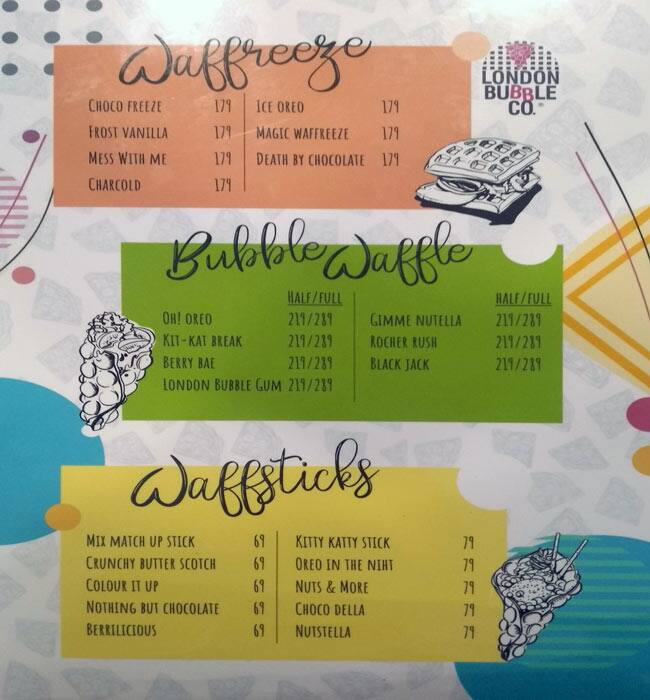 Waffreeze
LONDON
BUBBLE
CO.®
CHOCO FREEZE 179
FROST VANILLA 179
MESS WITH ME 179
CHARCOLD 179
ICE OREO 179
MAGIC WAFFREEZE 179
DEATH BY CHOCOLATE 179
Bubble Waffle
HALF/FULL
OH! OREO 219/289
KIT-KAT BREAK 219/289
BERRY BAE 219/289
LONDON BUBBLE GUM 219/289
HALF/FULL
GIMME NUTELLA 219/289
ROCHER RUSH 219/289
BLACK JACK 219/289
Waffsticks
MIX MATCH UP STICK 69
CRUNCHY BUTTER SCOTCH 69
COLOUR IT UP 69
NOTHING BUT CHOCOLATE 69
BERRILICIOUS 69
KITTY KATTY STICK 79
OREO IN THE NIHT 79
NUTS & MORE 79
CHOCO DELLA 79
NUTSTELLA 79